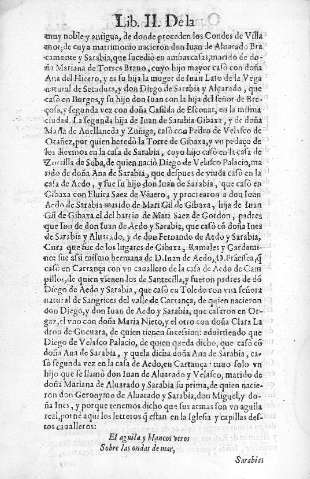 Lib. II. De la
muy noble y antigua, de donde proceden los Condes de Villa
mor, de cuyo matrimonio nacieron don Iuan de Aluarado Bra
camonte y Sarabia, que sucedió en ambas casas, marido de do-
ña Mariana de Torres Brano, cuyo hijo mayor casó con doña
Ana del Hierro, y es su hija la muger de Iuan Laso de la Vega
natural de Secadura, y don Diego de Sarabia y Aluarado, que
casó en Burgos, y su hijo don Iuan con la hija del señor de Bre-
y segunda vez con doña Casilda de Escouar, en la misma
ciudad. La segunda hija de Iuan de Sarabia Gibaxa, y de doña
Maria de Auellaneda y Zuñiga, casó con Pedro de Velasco de
Ocañez, por quien heredò la Torre de Gibaxa, y vn pedaço de
los diezmos en la casa de Sarabia, cuyo hijo casó en la casa de
Zorrilla de Soba, de quien nació Diego de Velasco Palacio, ma
rido de doña Ana de Sarabia, que despues de viuda casó en la
casa de Aedo, y fue su hijo don Iuan de Sarabia, que casó en
Gibaxa con Eluira Saez de Viuero, y procrearon a don Iuan
Aedo de Sarabia marido de Mari Gil de Gibaxa, hija de Iuan
Gil de Gibaxa el del barrio de Mari Saez de Gordon, padres
que son de don Iuan de Aedo y Sarabia, que casó con doña Ines
de Sarabia y Aluarado, y de don Fernando de Aedo y Sarabia,
Cura que fue de los lugares de Gibaxa, Ramales y Gardami-
que fue assi mismo hermana de D. Iuan de Aedo, D. Frácisca, q̃
casó en Carrança con vn cauallero de la casa de Aedo de Cam
pillos, de quien vienen los de Santecilla, y fueron padres de dõ
Diego de Aedo y Sarabia, que casó en Toledo con vna señora
natural de Sangrices del valle de Carrança, de quien nacieron
don Diego, y don Iuan de Aedo y Sarabia, que casaron en Or-
el vno con doña Maria Nieto, y el otro con doña Clara La
dron de Gueuara, de quien tienen sucesion: aduirtiendo que
Diego de Velasco Palacio, de quien queda dicho, que casó cõ
doña Ana de Sarabia, y que la dicha doña Ana de Sarabia, ca-
só segunda vez en la casa de Aedo, en Cartança tuuo solo vn
hijo que se llamò don Iuan de Aluarado y Velasco, marido de
doña Mariana de Aluarado y Sarabia su prima, de quien nacie-
ron don Geronymo de Aluarado y Sarabia, don Miguel, y do-
ña Ines, y porque tenemos dicho que sus armas son vn aguila
real, porné aqui los letreros q̃ estan en la Iglesia y capillas des-
tos caualleros:
El aguila y blancos veros
Sobre las ondas de mar,
Sarabias